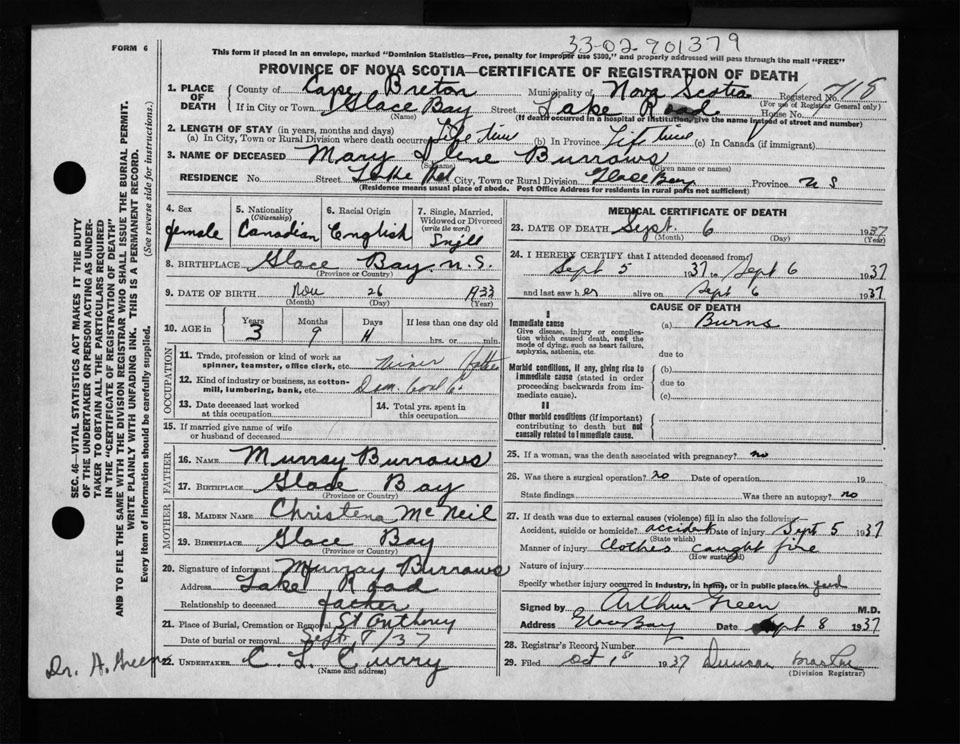 33-02-901379
FORM 6
This form if placed in an envelope, marked "Dominion Statistics—Free, penalty for improper use $300," and properly addressed will pass through the mail "FREE"
PROVINCE OF NOVA SCOTIA—CERTIFICATE OF REGISTRATION OF DEATH
1. PLACE OF DEATH
County of Cape Breton Municipality of Nova Scotia Registered No.
(For use of Registrar General only)
If in City or Town Glace Bay Street Lake Road House No.
(Name) (If death occurred in a hospital or institution, give the name instead of street and number)
2. LENGTH OF STAY (in years, months and days)
(a) In City, Town or Rural Division where death occurred Life time (b) In Province Life time (c) In Canada (if immigrant)
3. NAME OF DECEASED Mary Burrows
(Surname) (Given name or names)
RESIDENCE No. Street Lake Rd City, Town or Rural Division Glace Bay Province N S
(Residence means usual place of abode. Post Office Address for residents in rural parts not sufficient)
4. Sex
female
5. Nationality
(Citizenship)
Canadian
6. Racial Origin
English
7. Single, Married, Widowed or Divorced
(write the word)
8. BIRTHPLACE Glace Bay. N.S.
(Province or Country)
9. DATE OF BIRTH Nov 26
(Month) (Day) (Year)
10. AGE in
Years Months Days If less than one day old
3 9 hrs. or min.
OCCUPATION
11. Trade, profession or kind of work as spinner, teamster, office clerk, etc.
12. Kind of industry or business, as cotton-mill, lumbering, bank, etc. Dom. Coal Co
13. Date deceased last worked at this occupation
14. Total yrs. spent in this occupation
15. If married give name of wife or husband of deceased
FATHER
16. NAME Murray Burrows
17. BIRTHPLACE Glace Bay
(Province or Country)
MOTHER
18. MAIDEN NAME Christena McNeil
29. BIRTHPLACE Glace Bay
(Province or Country)
20. Signature of informant Murray Burrows
Address Lake Road
Relationship to deceased father
21. Place of Burial, Cremation or Removal St Anthony
Date of burial or removal Sept. 37
22. UNDERTAKER C. L. Curry
(Name and address)
MEDICAL CERTIFICATE OF DEATH
23. DATE OF DEATH Sept. 6 1937
(Month) (Day) (Year)
24. I HEREBY CERTIFY that I attended deceased from
Sept 5 1937 to Sept 6 1937
and last saw her alive on Sept 6 1937
CAUSE OF DEATH
I
Immediate cause
Give disease, injury, or complication which caused death, not the mode of dying, such as heart failure, asphyxia, asthenia, etc.
(a) Burns
due to
Morbid conditions, if any, giving rise to immediate cause (stated in order proceeding backwards from immediate cause).
(b)
due to
(c)
II
Other morbid conditions (if important) contributing to death but not causally related to immediate cause.
25. If a woman, was the death associated with pregnancy? no
26. Was there a surgical operation? no Date of operation 19
State findings Was there an autopsy? no
27. If death was due to external causes (violence) fill in also the following
Accident, suicide or homicide? accident Date of injury Sept 5 1937
(State which)
Manner of injury Clothes caught fire
(How sustained)
Nature of injury
Specify whether injury occurred in industry, in home, or in public place in yard
Signed by Arthur Green M.D.
Address Glace Bay Date Sept 8 1937
28. Registrar's Record Number
29. Filed Oct 1st 1937 Duncan
(Division Registrar)
SEC. 46—VITAL STATISTICS ACT MAKES IT THE DUTY
OF THE UNDERTAKER OR PERSON ACTING AS UNDERTAKER TO OBTAIN ALL THE PARTICULARS REQUIRED
IN THE "CERTIFICATE OF REGISTRATION OF DEATH"
AND TO FILE THE SAME WITH THE DIVISION REGISTRAR WHO SHALL ISSUE THE BURIAL PERMIT.
WRITE PLAINLY WITH UNFADING INK. THIS IS A PERMANENT RECORD.
Every item of information should be carefully supplied. (See reverse side for instructions.)
Dr. A. Green